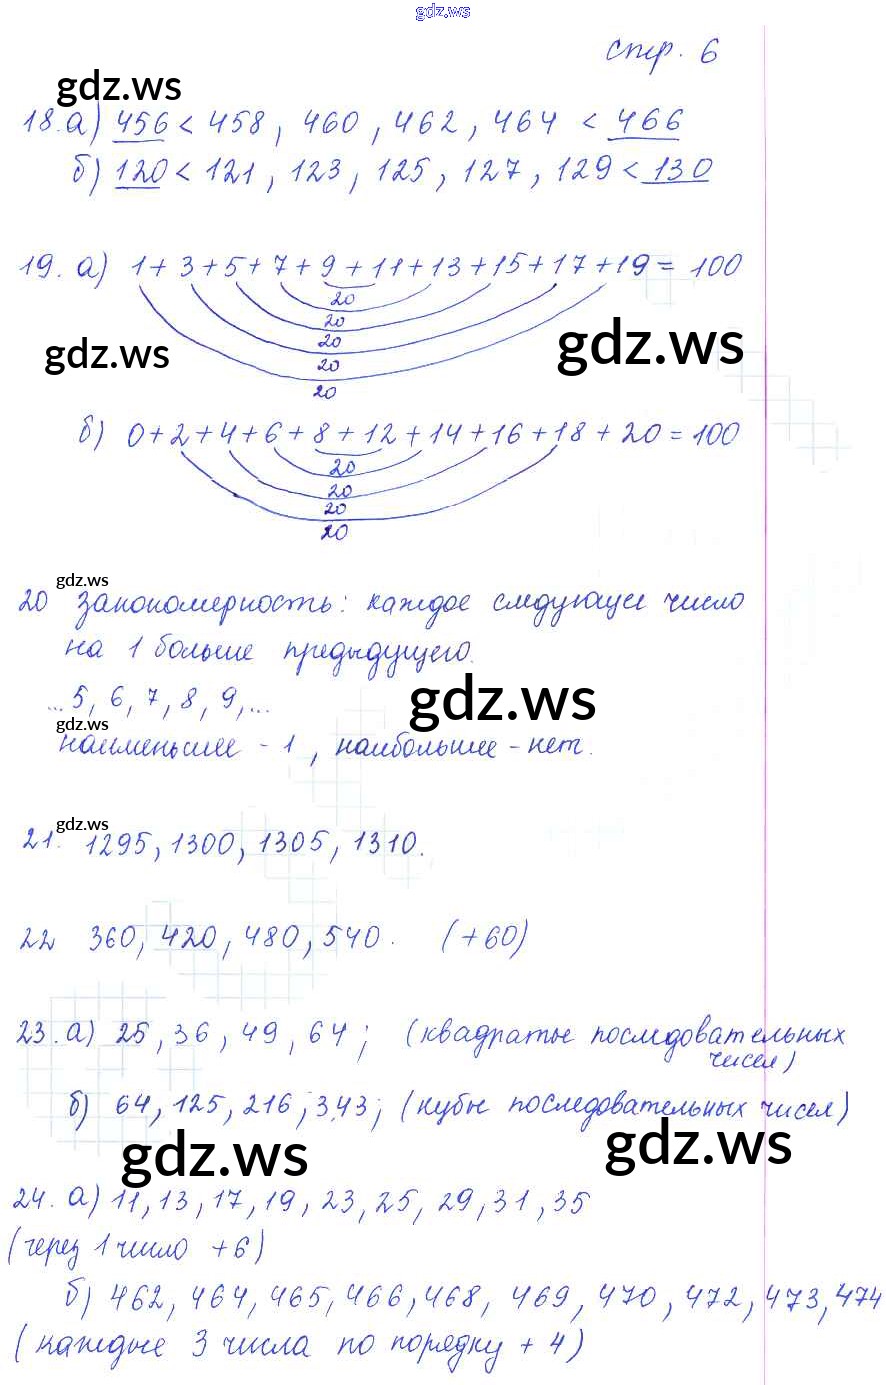 gdz.ws
стр. 6
gdz.ws
18.а) 456 < 458, 460, 462, 464 < 466
б) 120 < 121, 123, 125, 127, 129 < 130
19. а) 1+3+5+7+9+11+13+15+17+19=100
20
20
20
gdz.ws
gdz.ws
20
20
б) 0+2+4+6+8+12+14+16+18+20=100
20
20
20
20
gdz.ws
20 закономерность: каждое следующее число
на 1 больше предыдущего.
gdz.ws
...5, 6, 7, 8, 9,...
gdz.ws
наименьшее - 1, наибольшее - нет.
gdz.ws
21. 1295, 1300, 1305, 1310.
22 360, 420, 480, 540. (+60)
23.а) 25, 36, 49, 64; (квадраты последовательных
чисел)
б) 64, 125, 216, 343; (кубы последовательных чисел)
gdz.ws
gdz.ws
24. а) 11, 13, 17, 19, 23, 25, 29, 31, 35
(через 1 число +6)
б) 462, 464, 465, 466, 468, 469, 470, 472, 473, 474
(каждые 3 числа по порядку + 4)